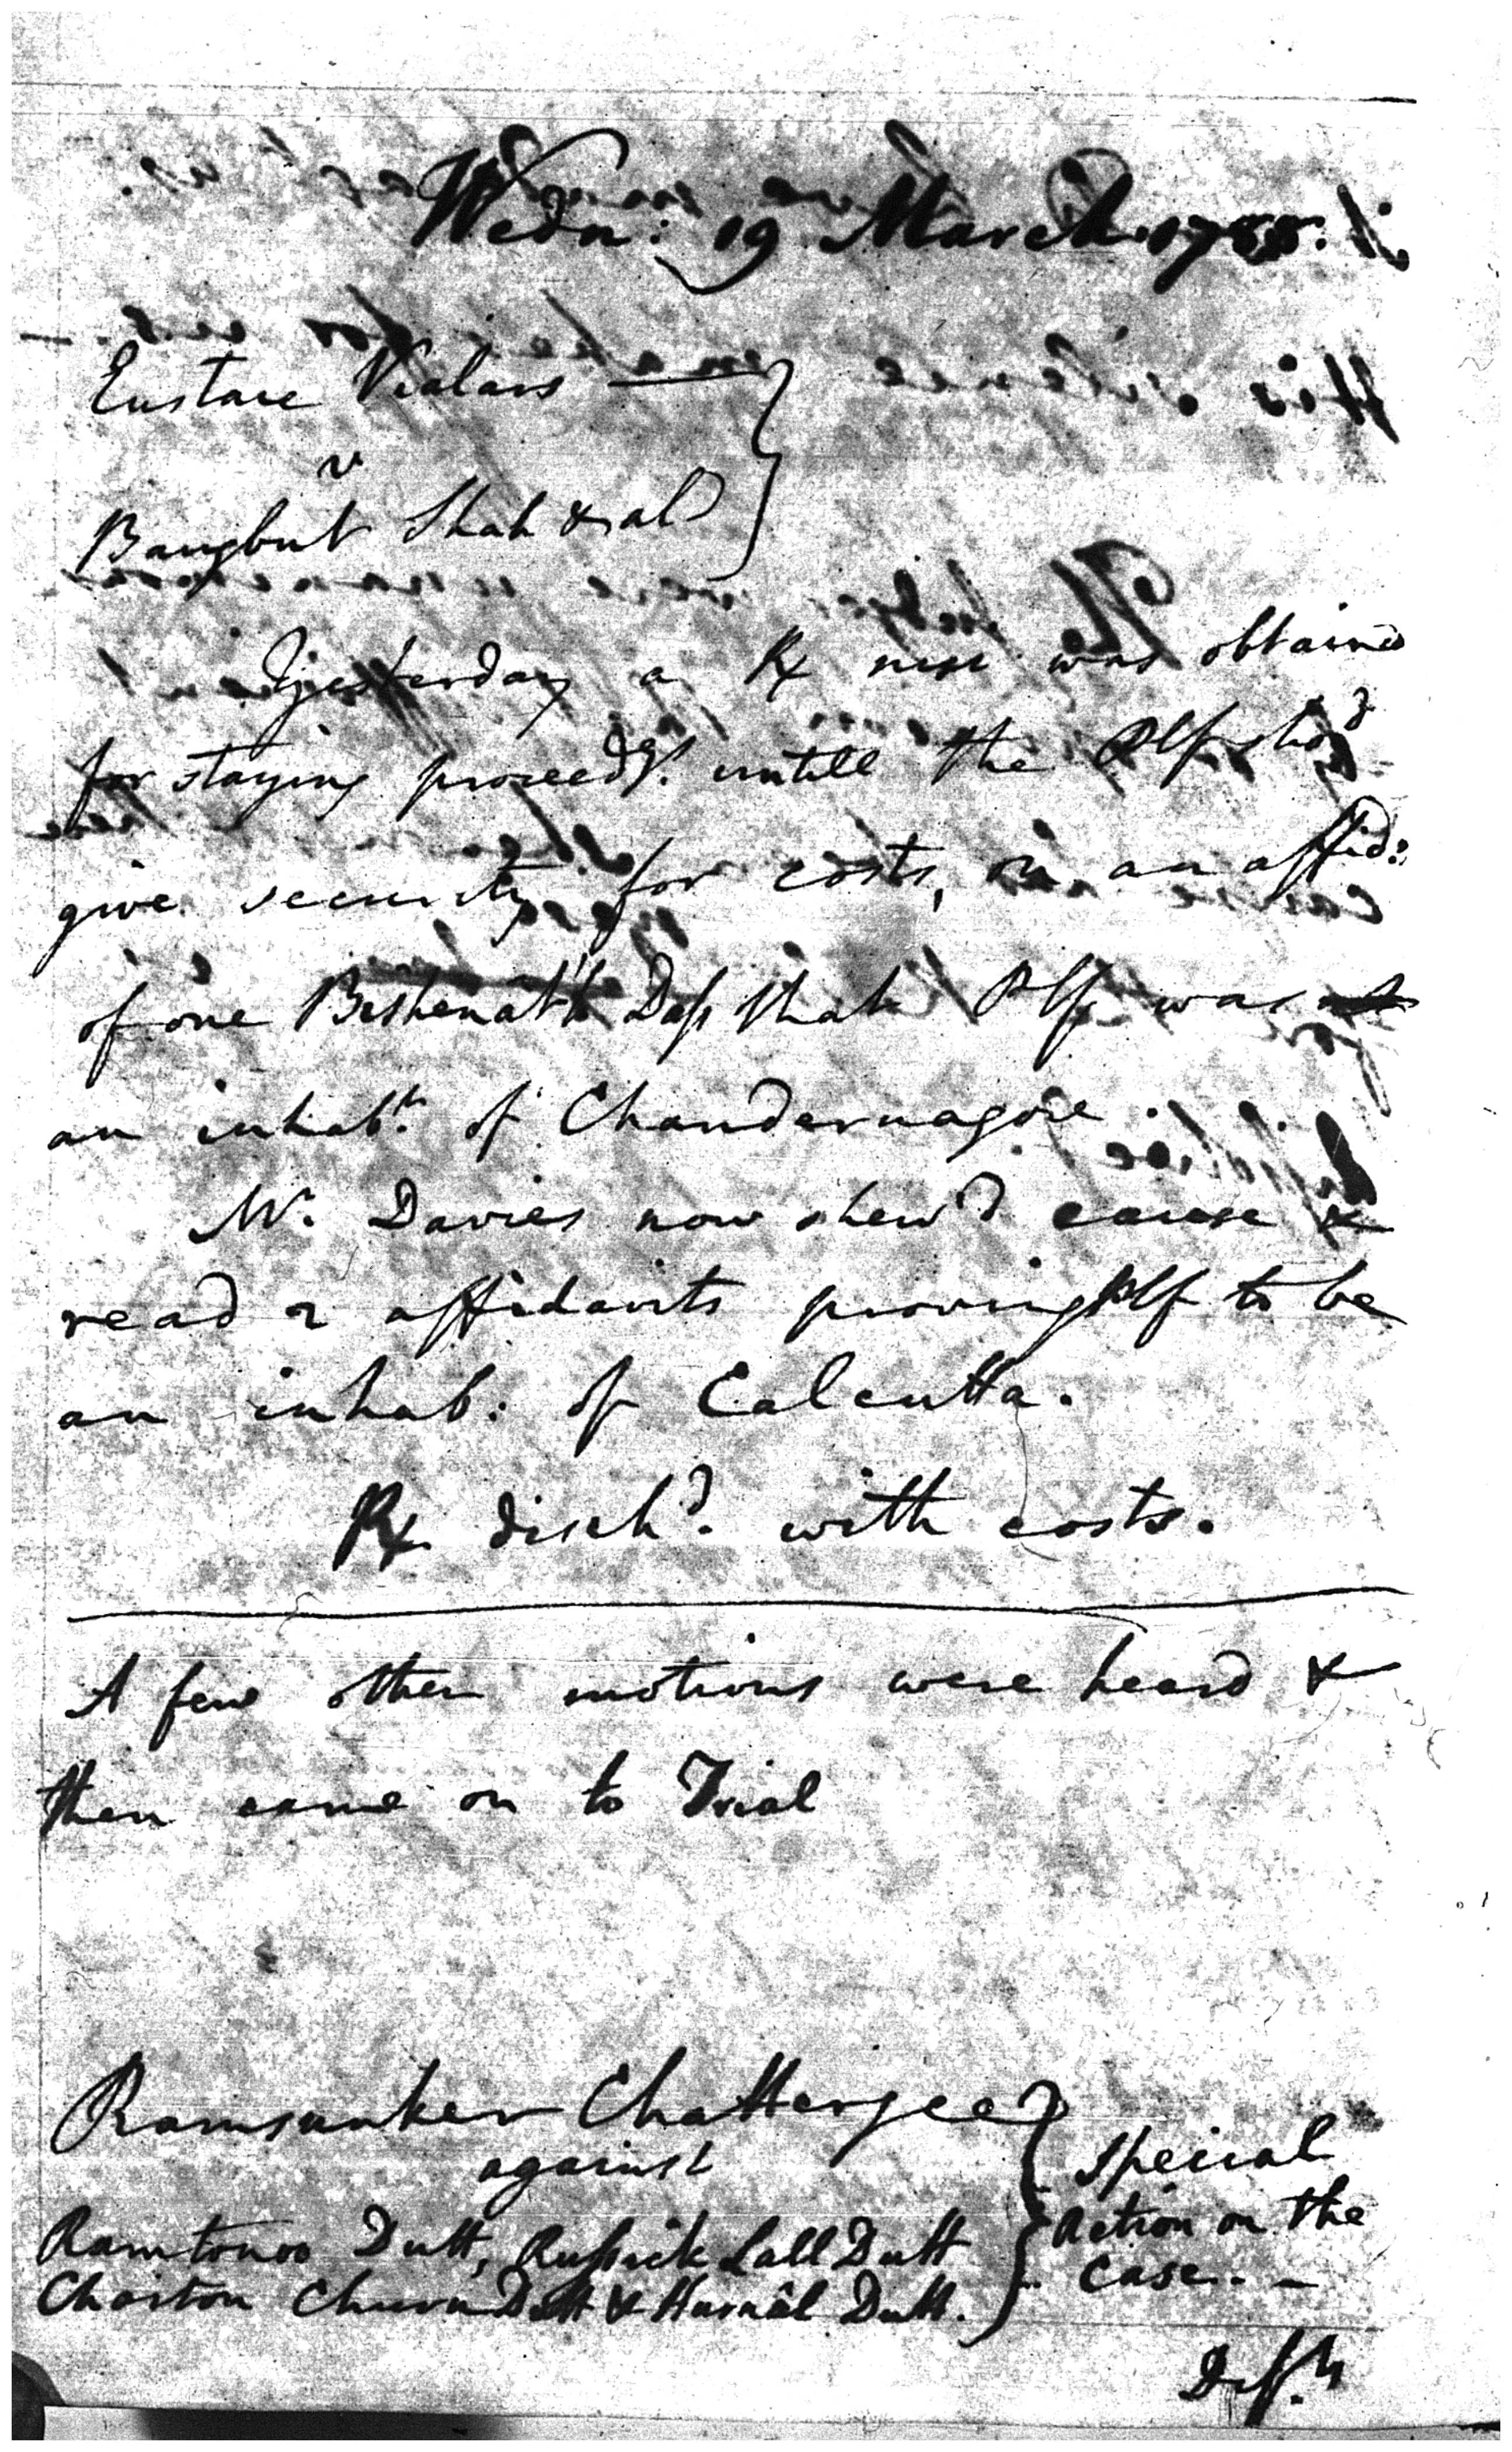 Wedn: 19 March 1788.
Eustace Vialars —
v
Baugbut Shah & al
Yesterday a Rx nisi was obtained
for staying proceedgs. untill the Plf shod
give security for costs, on an affid:
of one Bishenath Dass that Plf was
an inhabt. of Chandernagore.
Mr. Davies now shew'd cause &
read 2 affidavits proving Plf to be
an inhab: of Calcutta.
Rx disch'd. with costs.
A few other motions were heard &
then came on to Trial
Ramsunker Chatterjee
against
Ramtonoo Dutt, Russick Lall Dutt
Choiton Churn Dutt & Huralal Dutt.
Special
Action on the
Case. —
Deft.